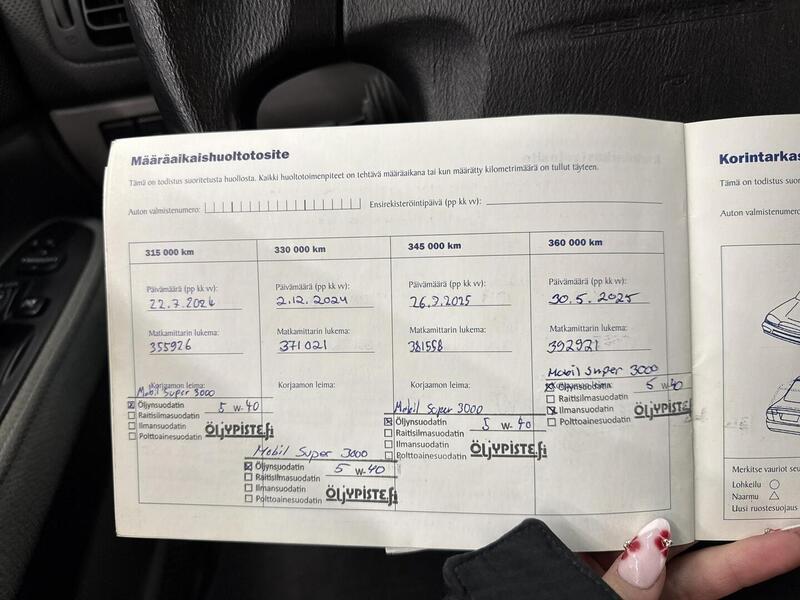 Määräaikaishuoltotosite
Tämä on todistus suoritetusta huollosta. Kaikki huoltotoimenpiteet on tehtävä määräaikana tai kun määrätty kilometrimäärä on tullut täyteen.
Auton valmistenumero:
Ensirekisteröintipäivä (pp kk vv):
315 000 km
Päivämäärä (pp kk vv):
22.7.2024
Matkamittarin lukema:
355926
Korjaamon leima:
Mobil Super 3000
Öljynsuodatin 5 W-40
Raitisilmasuodatin
Ilmansuodatin
Polttoainesuodatin
ÖLJYPISTE.fi
330 000 km
Päivämäärä (pp kk vv):
2.12.2024
Matkamittarin lukema:
371021
Korjaamon leima:
Mobil Super 3000
Öljynsuodatin 5 W-40
Raitisilmasuodatin
Ilmansuodatin
Polttoainesuodatin
ÖLJYPISTE.fi
345 000 km
Päivämäärä (pp kk vv):
2025
Matkamittarin lukema:
381558
Korjaamon leima:
Mobil Super 3000
Öljynsuodatin 5 W-40
Raitisilmasuodatin
Ilmansuodatin
Polttoainesuodatin
ÖLJYPISTE.fi
360 000 km
Päivämäärä (pp kk vv):
30.5.2025
Matkamittarin lukema:
392921
Mobil Super 3000
Korjaamon leima:
Öljynsuodatin 5 W-40
Raitisilmasuodatin
Ilmansuodatin
Polttoainesuodatin
ÖLJYPISTE.fi
Korintarkas
Tämä on todistus suorit
Auton valmistenumero
Merkitse vauriot seu
Lohkeilu
Naarmu
Uusi ruostesuojaus